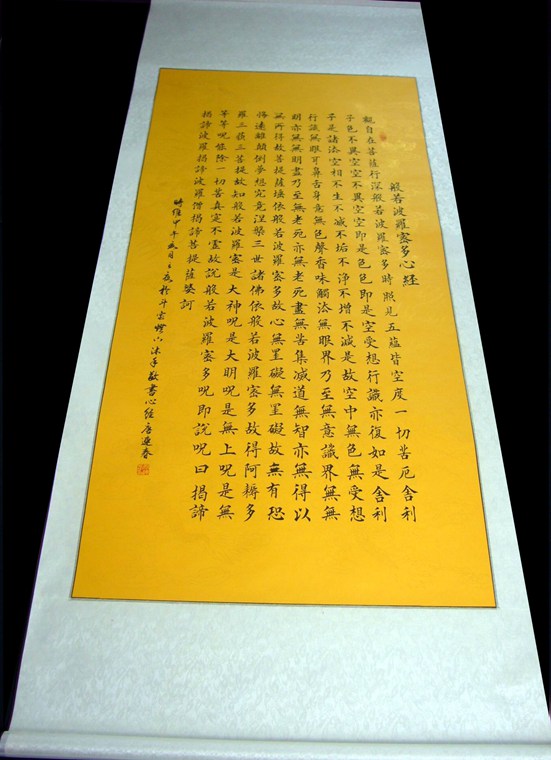 般若波羅蜜多心経
觀自在菩薩行深般若波羅蜜多時照見五蘊皆空度一切苦厄舍利
子色不異空空不異空空即是色色即是空受想行識亦復如是舍利
子是諸法空相不生不滅不垢不浄不增不減是故空中無色無受想
行識無眼耳鼻舌身意無色聲香味觸法無眼界乃至無意識界無無
明亦無無明盡乃至無老死亦無老死盡無苦集滅道無智亦無得以
無所得故菩提薩埵依般若波羅蜜多故心無罣礙無罣礙故無有恐
怖遠離顛倒夢想究竟涅槃三世諸佛依般若波羅蜜多故得阿耨多
羅三藐三菩提故知般若波羅蜜是大神呪是大明呪是無上呪是無
等等呪能除一切苦真实不虛故說般若波羅蜜多呪即說呪曰揭諦
揭諦波羅揭諦波羅僧揭諦菩提薩婆訶
時維甲午 月 於 沐手敬書心經唐 春